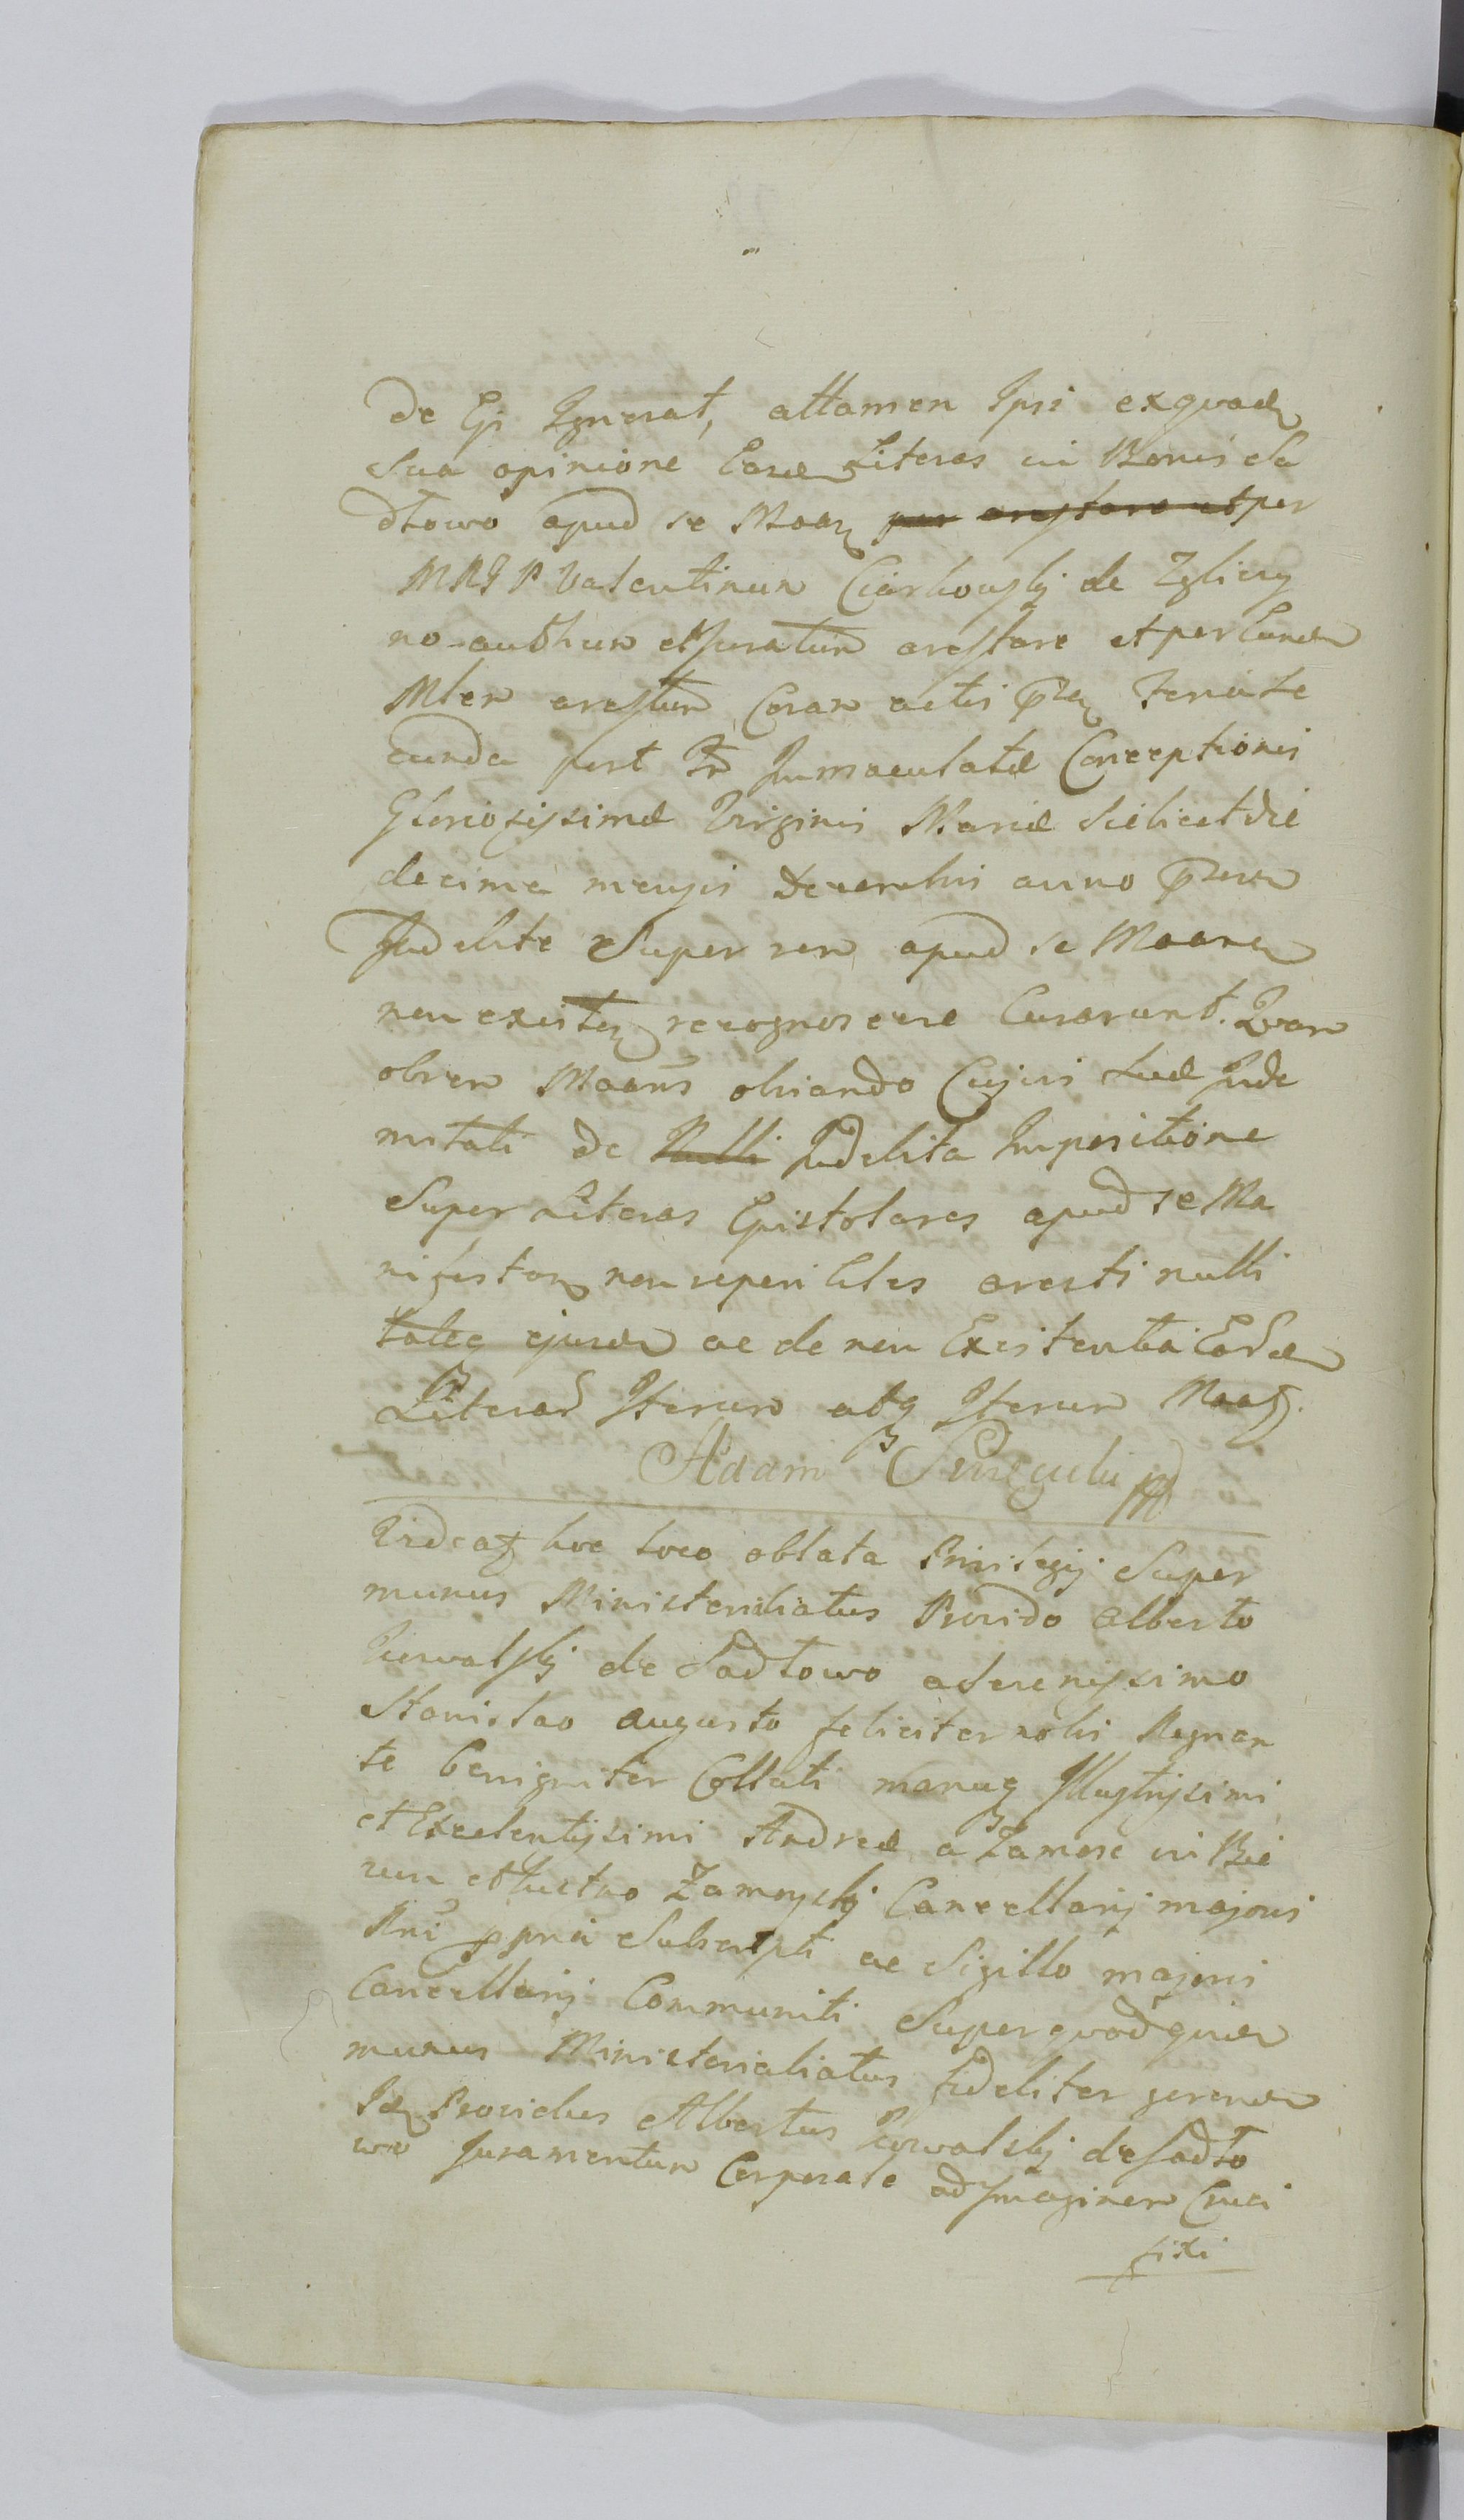 de Ej Ignorat, attamen Ipsi exquada
Sua opinione Easdem Literas in Bonis Sa
dłowo apud se Maan per arestare et per
MRGP Valentinum Ciarkowskj de Zglicey
no authum et Juratum arestare et per Eundem
Mlem arestum Coram actis Feria Se
cunda post Immaculatæ Conceptionis
Gloriosissimæ Virginis Mariæ Scilicet die
decima mensis Decembris anno
Indebite Super rem apud se
non exis recognoscere Curarunt. Quam
obrem Maans obiando Cujus suæ Inde
mnitati de Nulli Indebita Impositione
Super Literas Epistolares apud se Ma
nifestan non reperibiles aresti nulli
tateq ejusdem ac de non Existentia Earundem
Literar Iterum atq Iterum Maag.
Adam
Videat hoc loco oblata Privilegij Super
munus Ministerialiatus Provido Alberto
Kowalskj de Sadłowo a Serenissimo
Stanislao Augusto feliciter nobis Regnan
te Benigniter Collati manuq Illustrissimi
et Excelentissimi Andreæ a Zamosc in Bie
zun et Zamoyskj Cancellarij majoris
Rni ppria Subscripti ac Sigillo majoris
Cancellarij Communiti Super quodquidem
munus Ministerialiatus fideliter gerendum
Idem Providus Albertus Kowalskj de Sadło
wo Juramentum Corporale ad Imaginem Cruci
fixi